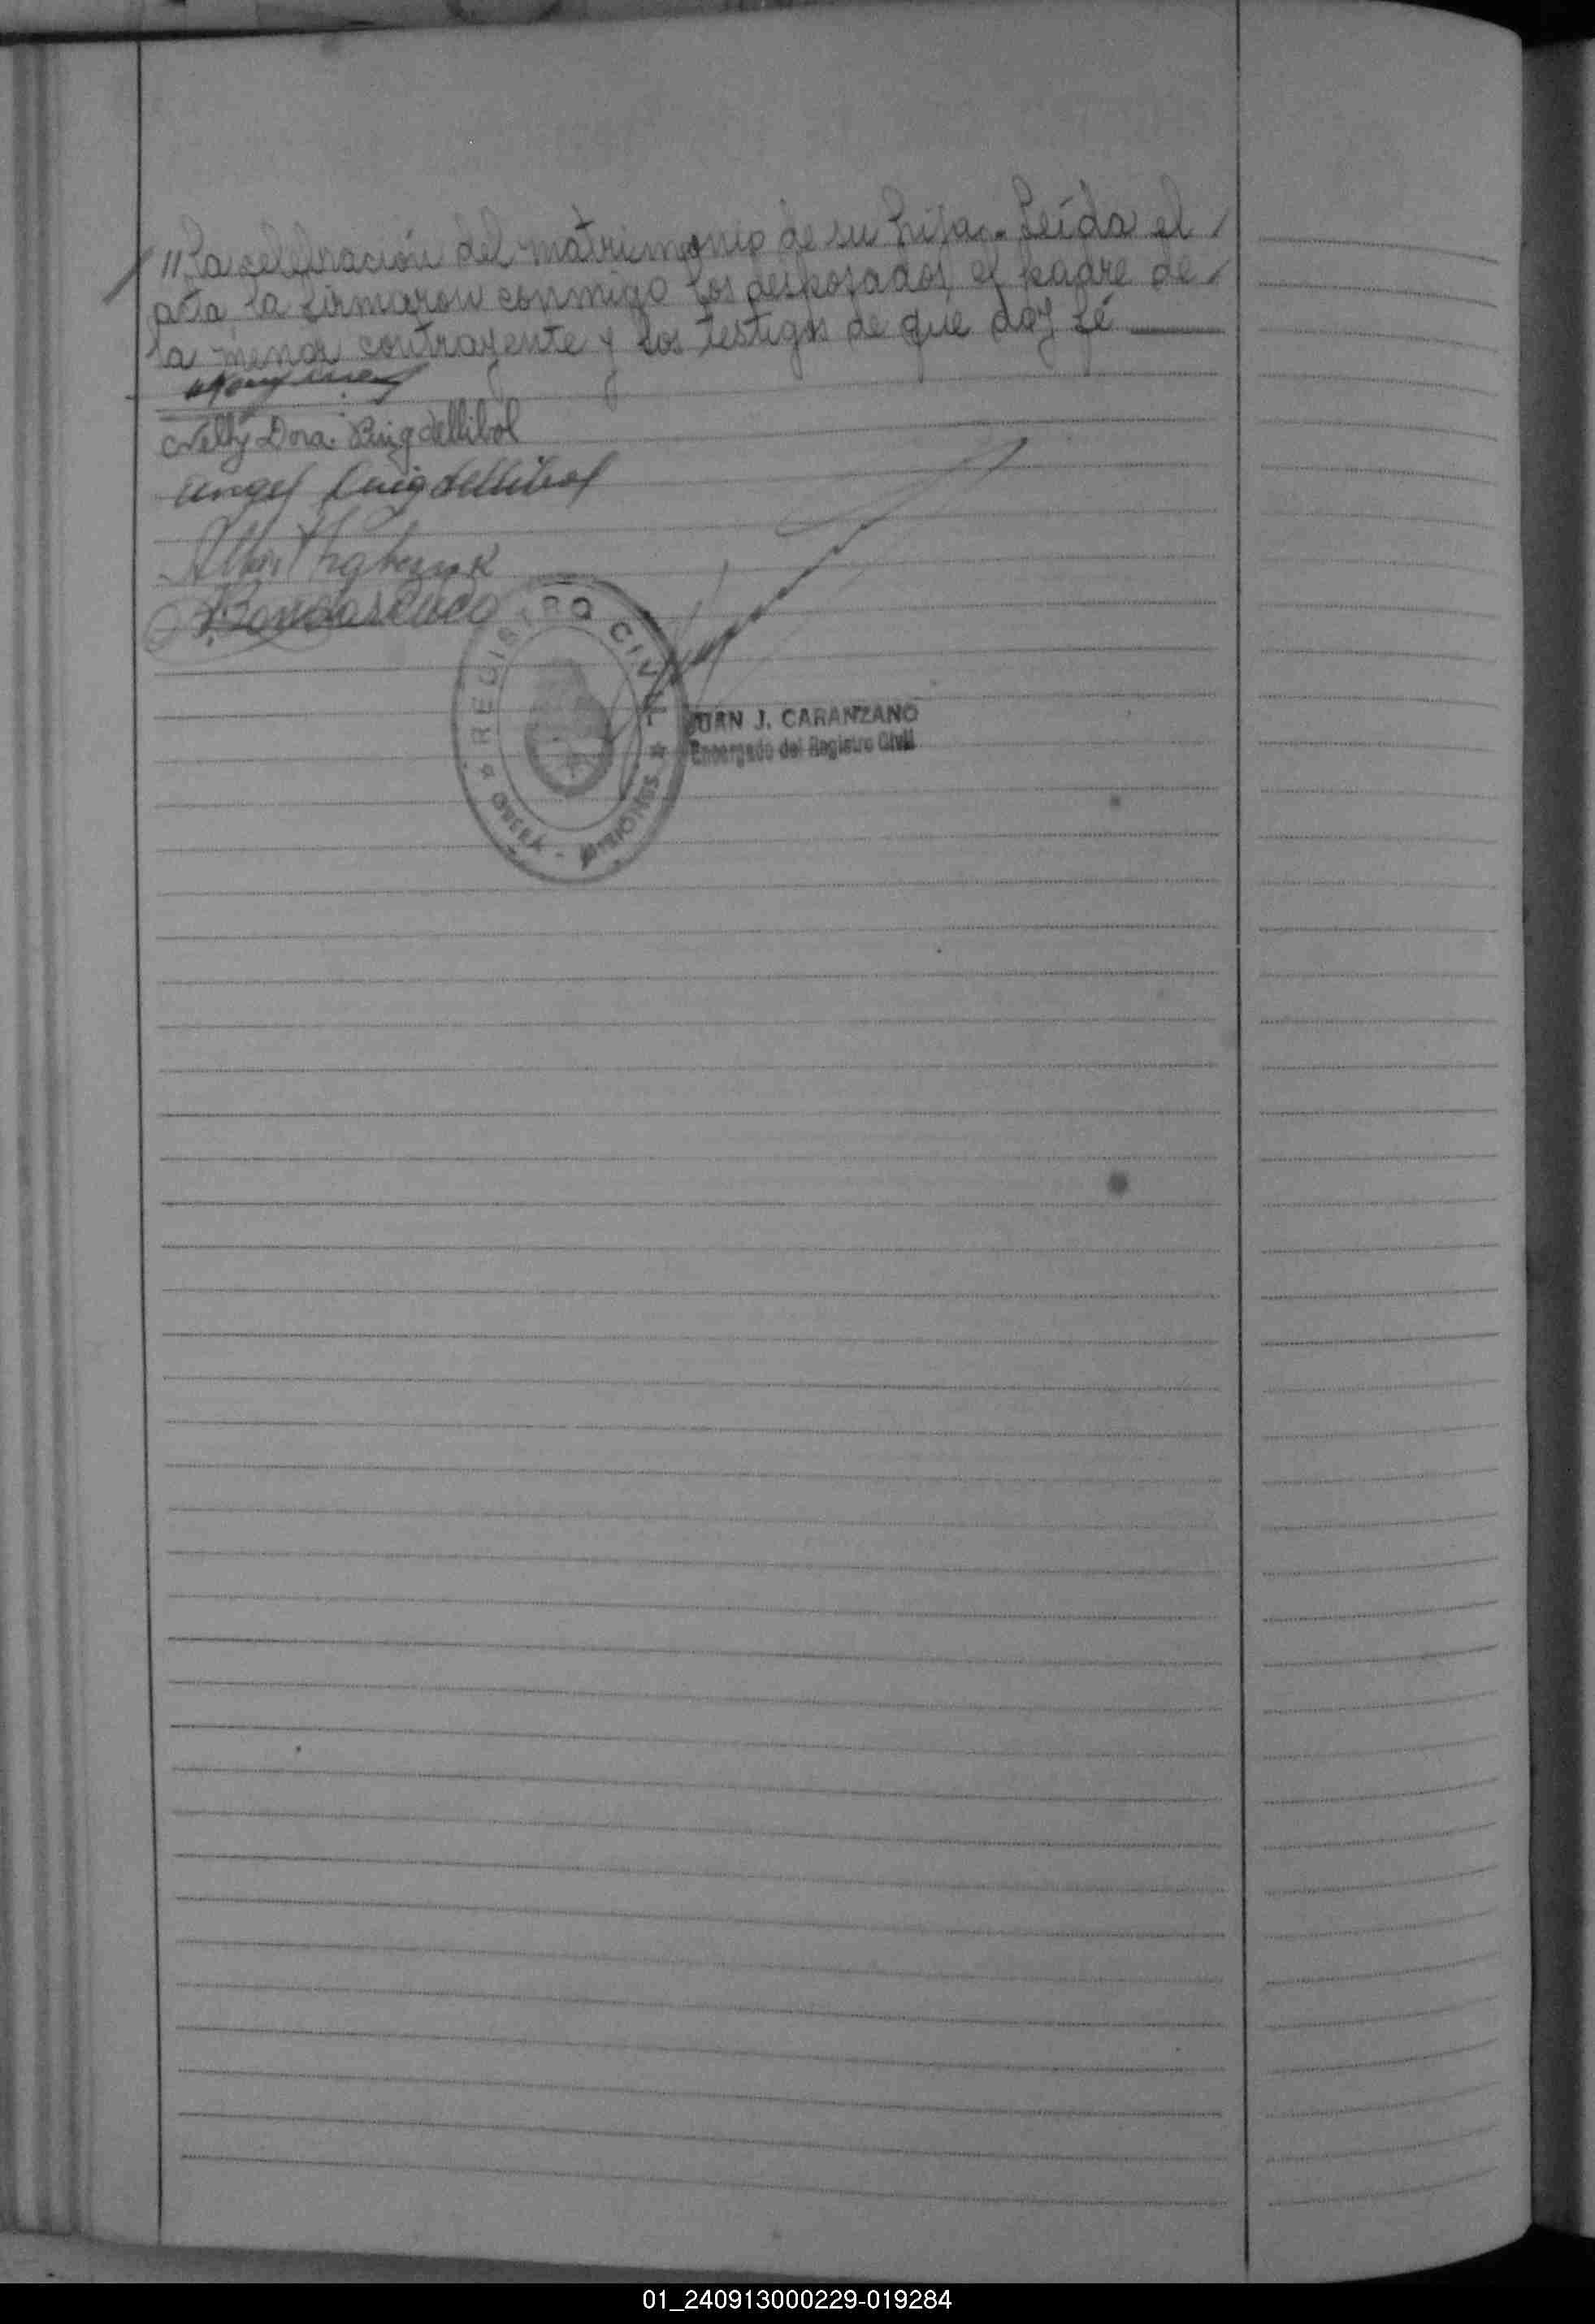 // la celebración del matrimonio de su hija.- Leída el /
acta, la firmaron conmigo los desposados, el padre de /
la menor contrayente y los testigos de que doy fé
Nelly Dora Puigdellibol
Angel Puigdellibol
REGISTRO CIVIL
JUAN J. CARANZANO
Encargado del Registro Civil
OBERÁ - MISIONES
01_240913000229-019284